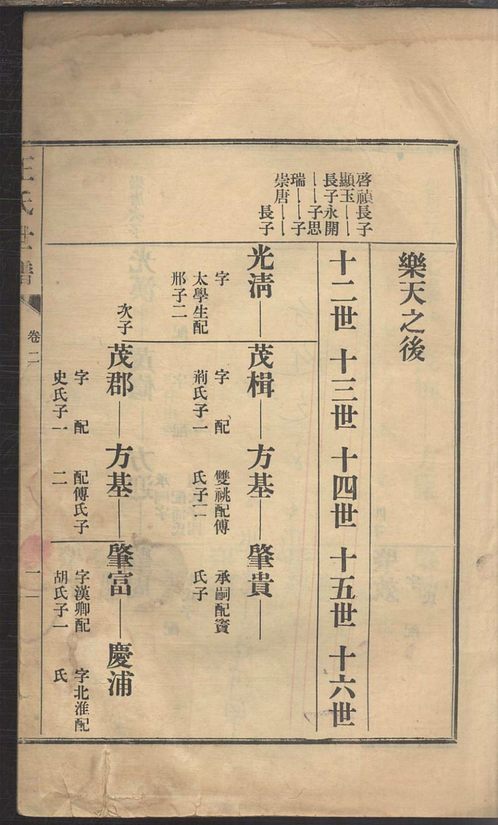 樂天之後
十二世 十三世 十四世 十五世 十六世
啓禎長子
顯玉——
長子永開
——子思
瑞——子
崇唐——
長子
光清——茂楫——方基——肇貴——
字
太學生配
邢子二
字 配
荊氏子一
雙祧配傅
氏子二
承嗣配竇
氏子
次子
茂郡——方基——肇富——慶浦
字 配
史氏子一
配傅氏子
二
字漢卿配
胡氏子一
字北淮配
氏
王氏世譜
卷二